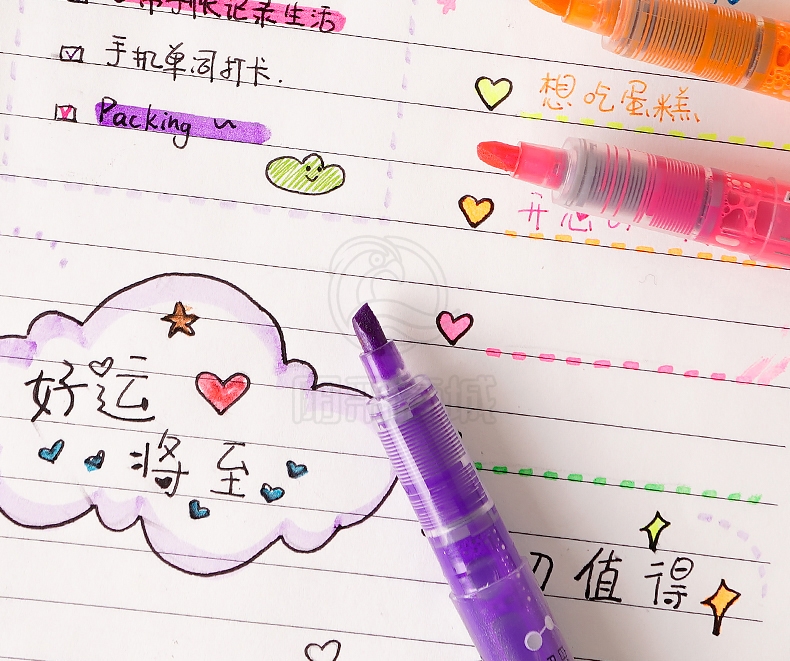 记录生活
手机单词打卡.
Packing
想吃蛋糕
开心
好运
将至
值得